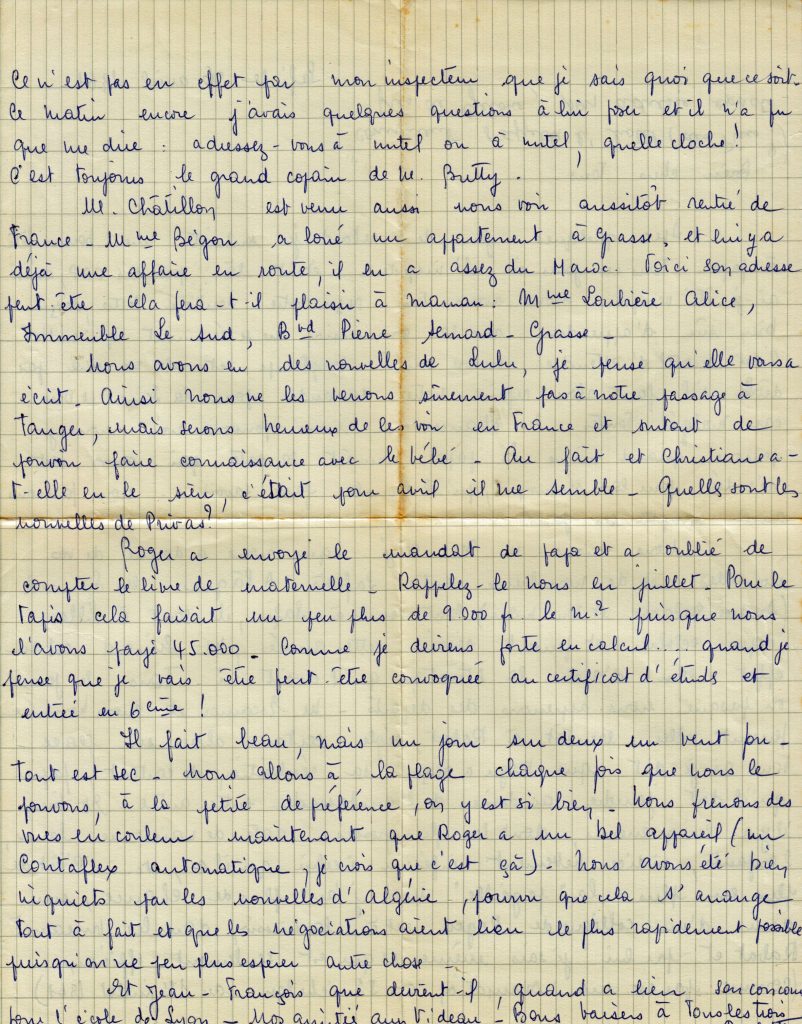 Ce n'est pas en effet par mon inspecteur que je sais quoi que ce soit.
Ce matin encore j'avais quelques questions à lui poser et il n'a pu
que me dire : adressez-vous à untel ou à untel, quelle cloche !
C'est toujours le grand copain de M. Butty.
M. Châtillon est venu aussi nous voir aussitôt rentré de
France - Mme Bégon a loué un appartement à Grasse, et lui y a
déjà une affaire en route, il en a assez du Maroc. Voici son adresse
peut-être cela fera-t-il plaisir à maman : Mme Loubière Alice,
Immeuble Le Sud, Bvd Pierre Semard - Grasse -
Nous avons eu des nouvelles de Lulu, je pense qu'elle vous a
écrit - Ainsi nous ne les verrons sûrement pas à notre passage à
Tanger, mais serons heureux de les voir en France et surtout de
pouvoir faire connaissance avec le bébé - Au fait et Christiane a-
t-elle eu le sien, c'était pour avril il me semble - Quelles sont les
nouvelles de Privas ?
Roger a envoyé le mandat de papa et a oublié de
compter le livre de maternelle - Rappelez-le nous en juillet - Pour le
tapis cela faisait un peu plus de 9.000 fr. le m.2 puisque nous
l'avons payé 45.000 - Comme je deviens forte en calcul.... quand je
pense que je vais être peut-être convoquée au certificat d'études et
entrée en 6ème !
Il fait beau, mais un jour sur deux un vent par-
tout est sec - Nous allons à la plage chaque fois que nous le
pouvons, à la petite de préférence, on y est si bien - Nous prenons des
vues en couleur maintenant que Roger a un bel appareil (un
Contaflex automatique, je crois que c'est çà) - Nous avons été bien
inquiets par les nouvelles d'Algérie, pourvu que cela s'arrange
tout à fait et que les négociations aient lieu le plus rapidement possible
puisqu'on ne peu plus espérer autre chose -
Et Jean-François que devient-il, quand a lieu son concours
pour l'école de Lyon - Nos amitiés aux Videau - Bons baisers à tous les trois